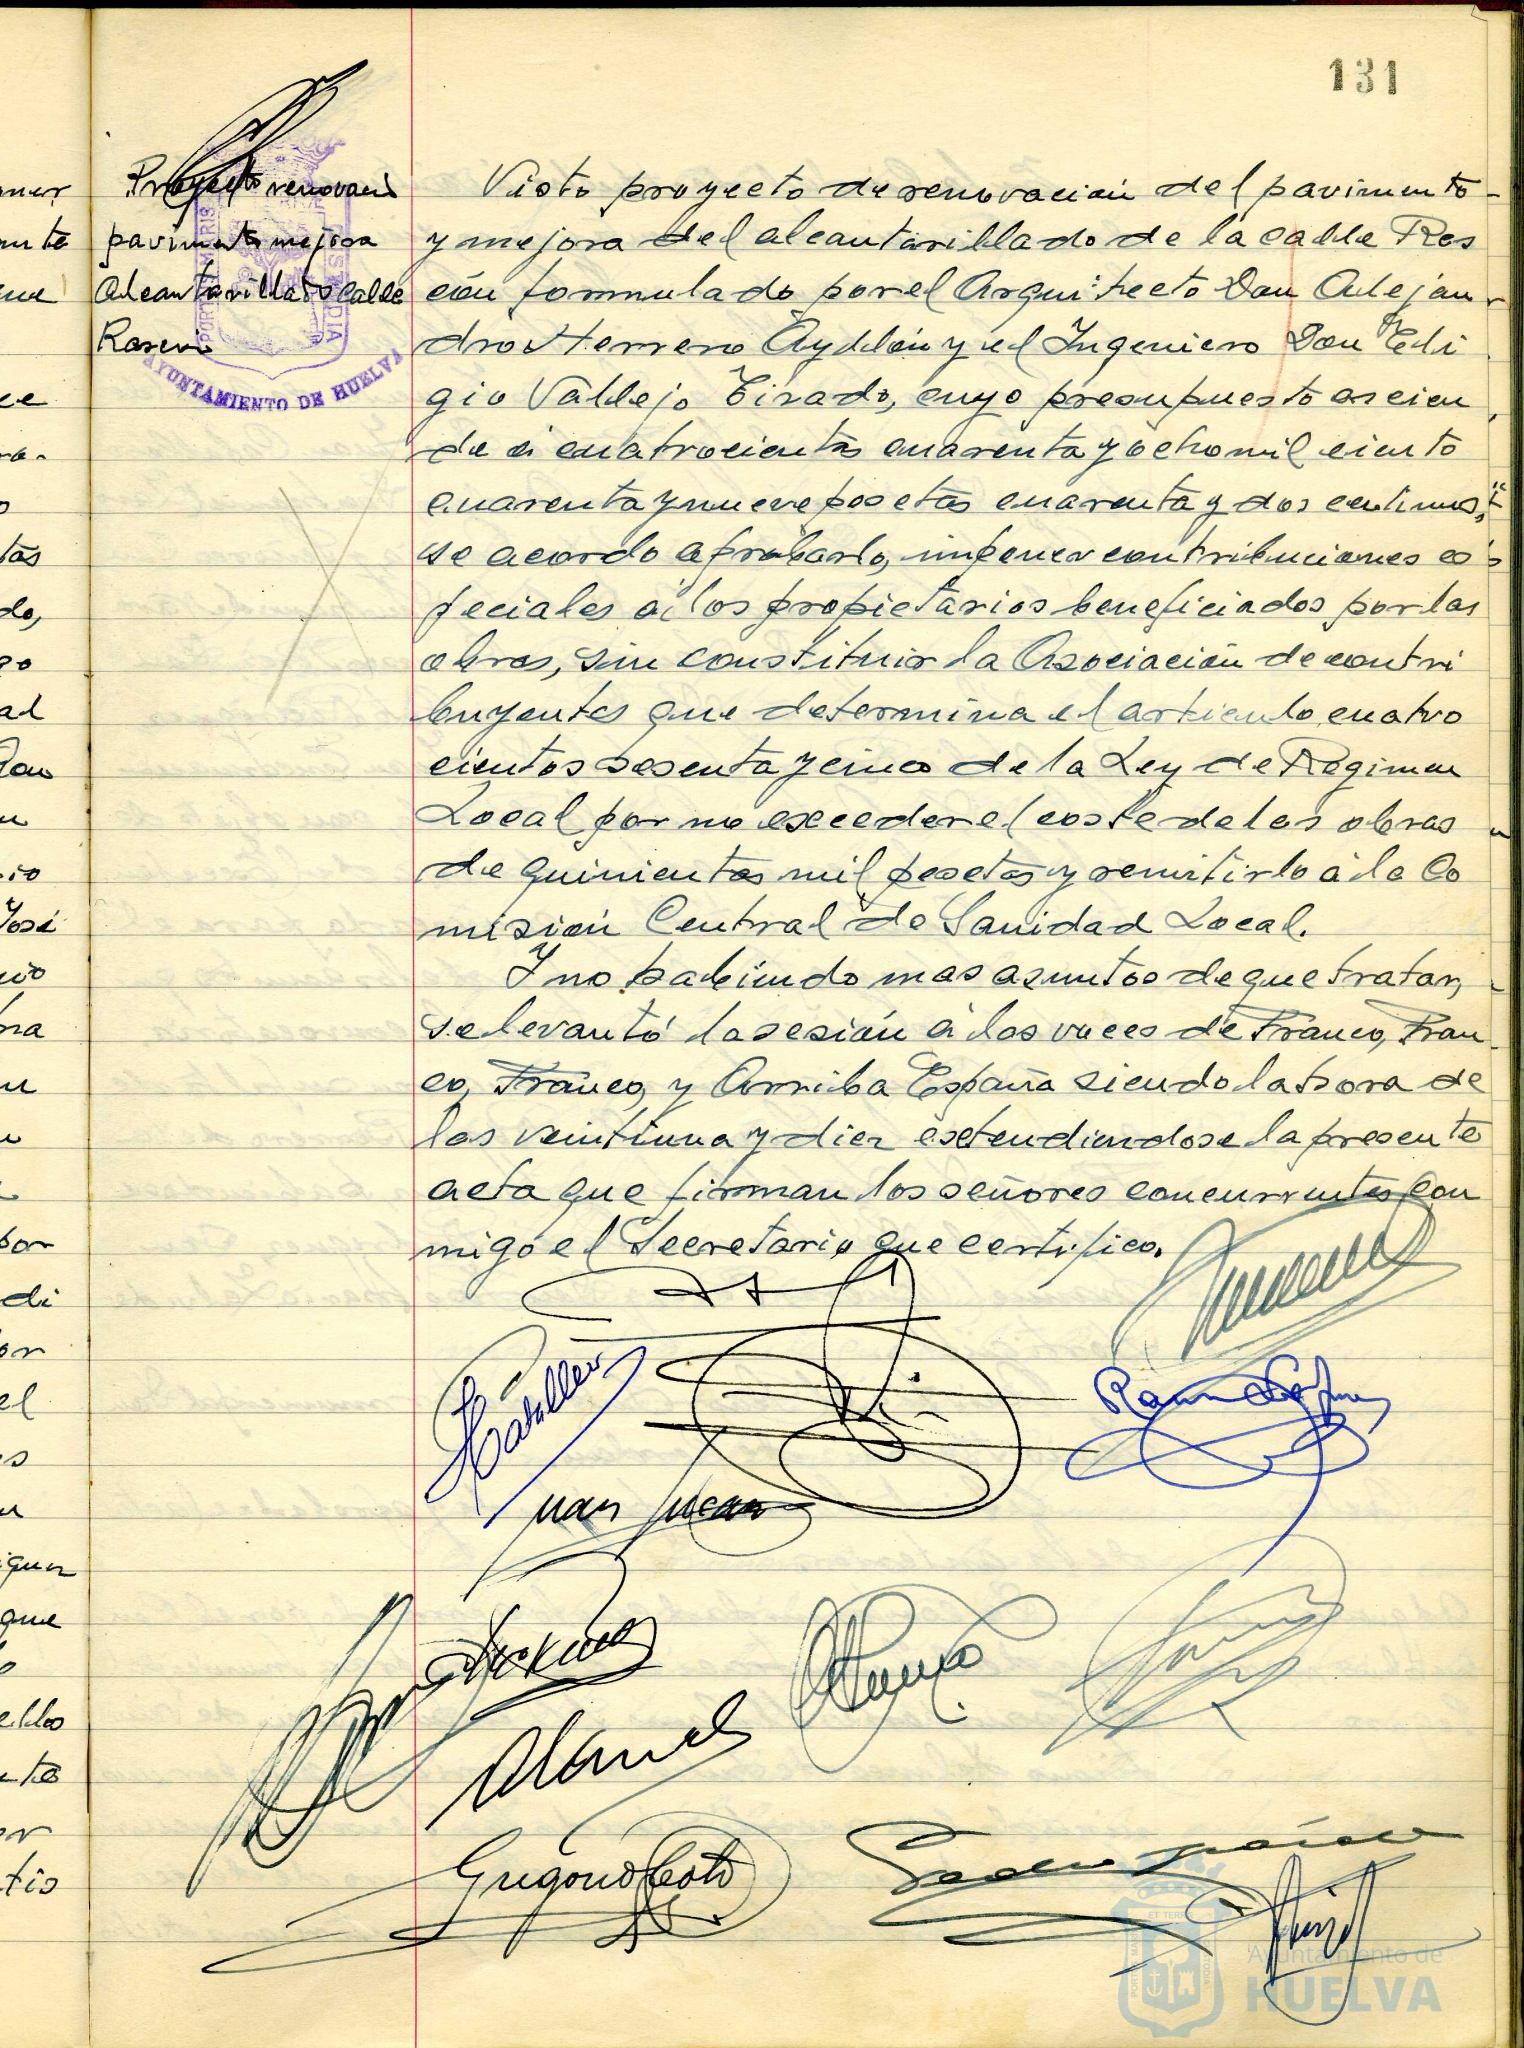 131
Proyecto renovació
pavimento mejora
Alcantarillado calle
Rascon
AYUNTAMIENTO DE HUELVA
Visto proyecto de renovacion del pavimento
y mejora del alcantarillado de la calle Ras
cón formulado por el Arquitecto Don Alejan
dro Herrero Ayllón y el Ingeniero Don Edi
gio Vallejo Tirado, cuyo presupuesto ascien
de á cuatrocientas cuarenta y ocho mil ciento
cuarenta y nueve pesetas cuarenta y dos centimos,
se acordo aprobarlo, imponer contribuciones es
peciales á los propietarios beneficiados por las
obras, sin constituir la Asociación de contri
buyentes que determina el articulo cuatro
cientos sesenta y cinco de la Ley de Regimen
Local por no exceder el coste de las obras
de quinientas mil pesetas y remitirlo á la Co
misión Central de Sanidad Local.
Y no habiendo mas asuntos de que tratar,
se levantó la sesión á las voces de Franco, Fran
co, Franco, y Arriba España siendo la hora de
las veintiuna y diez extendiendose la presente
acta que firman los señores concurrentes con
migo el Secretario que certifico.
Juan
Gregorio Soto
Pedro
Ayuntamiento de
HUELVA